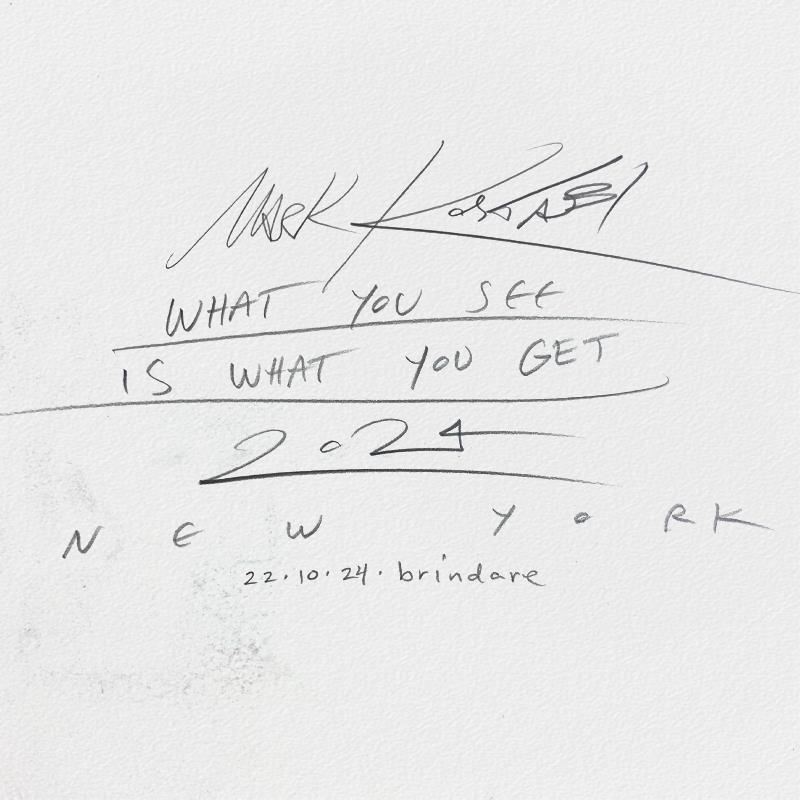 MARK KOSTABI
WHAT YOU SEE
IS WHAT YOU GET
2024
NEW YORK
22.10.24. brindare